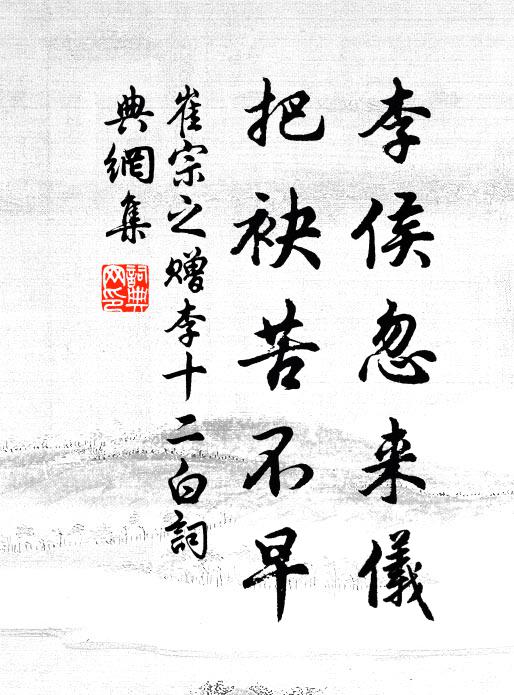 李侯忽来儀
把袂苦不早
崔宗之赠李十二白詞
典網集
詞典网印